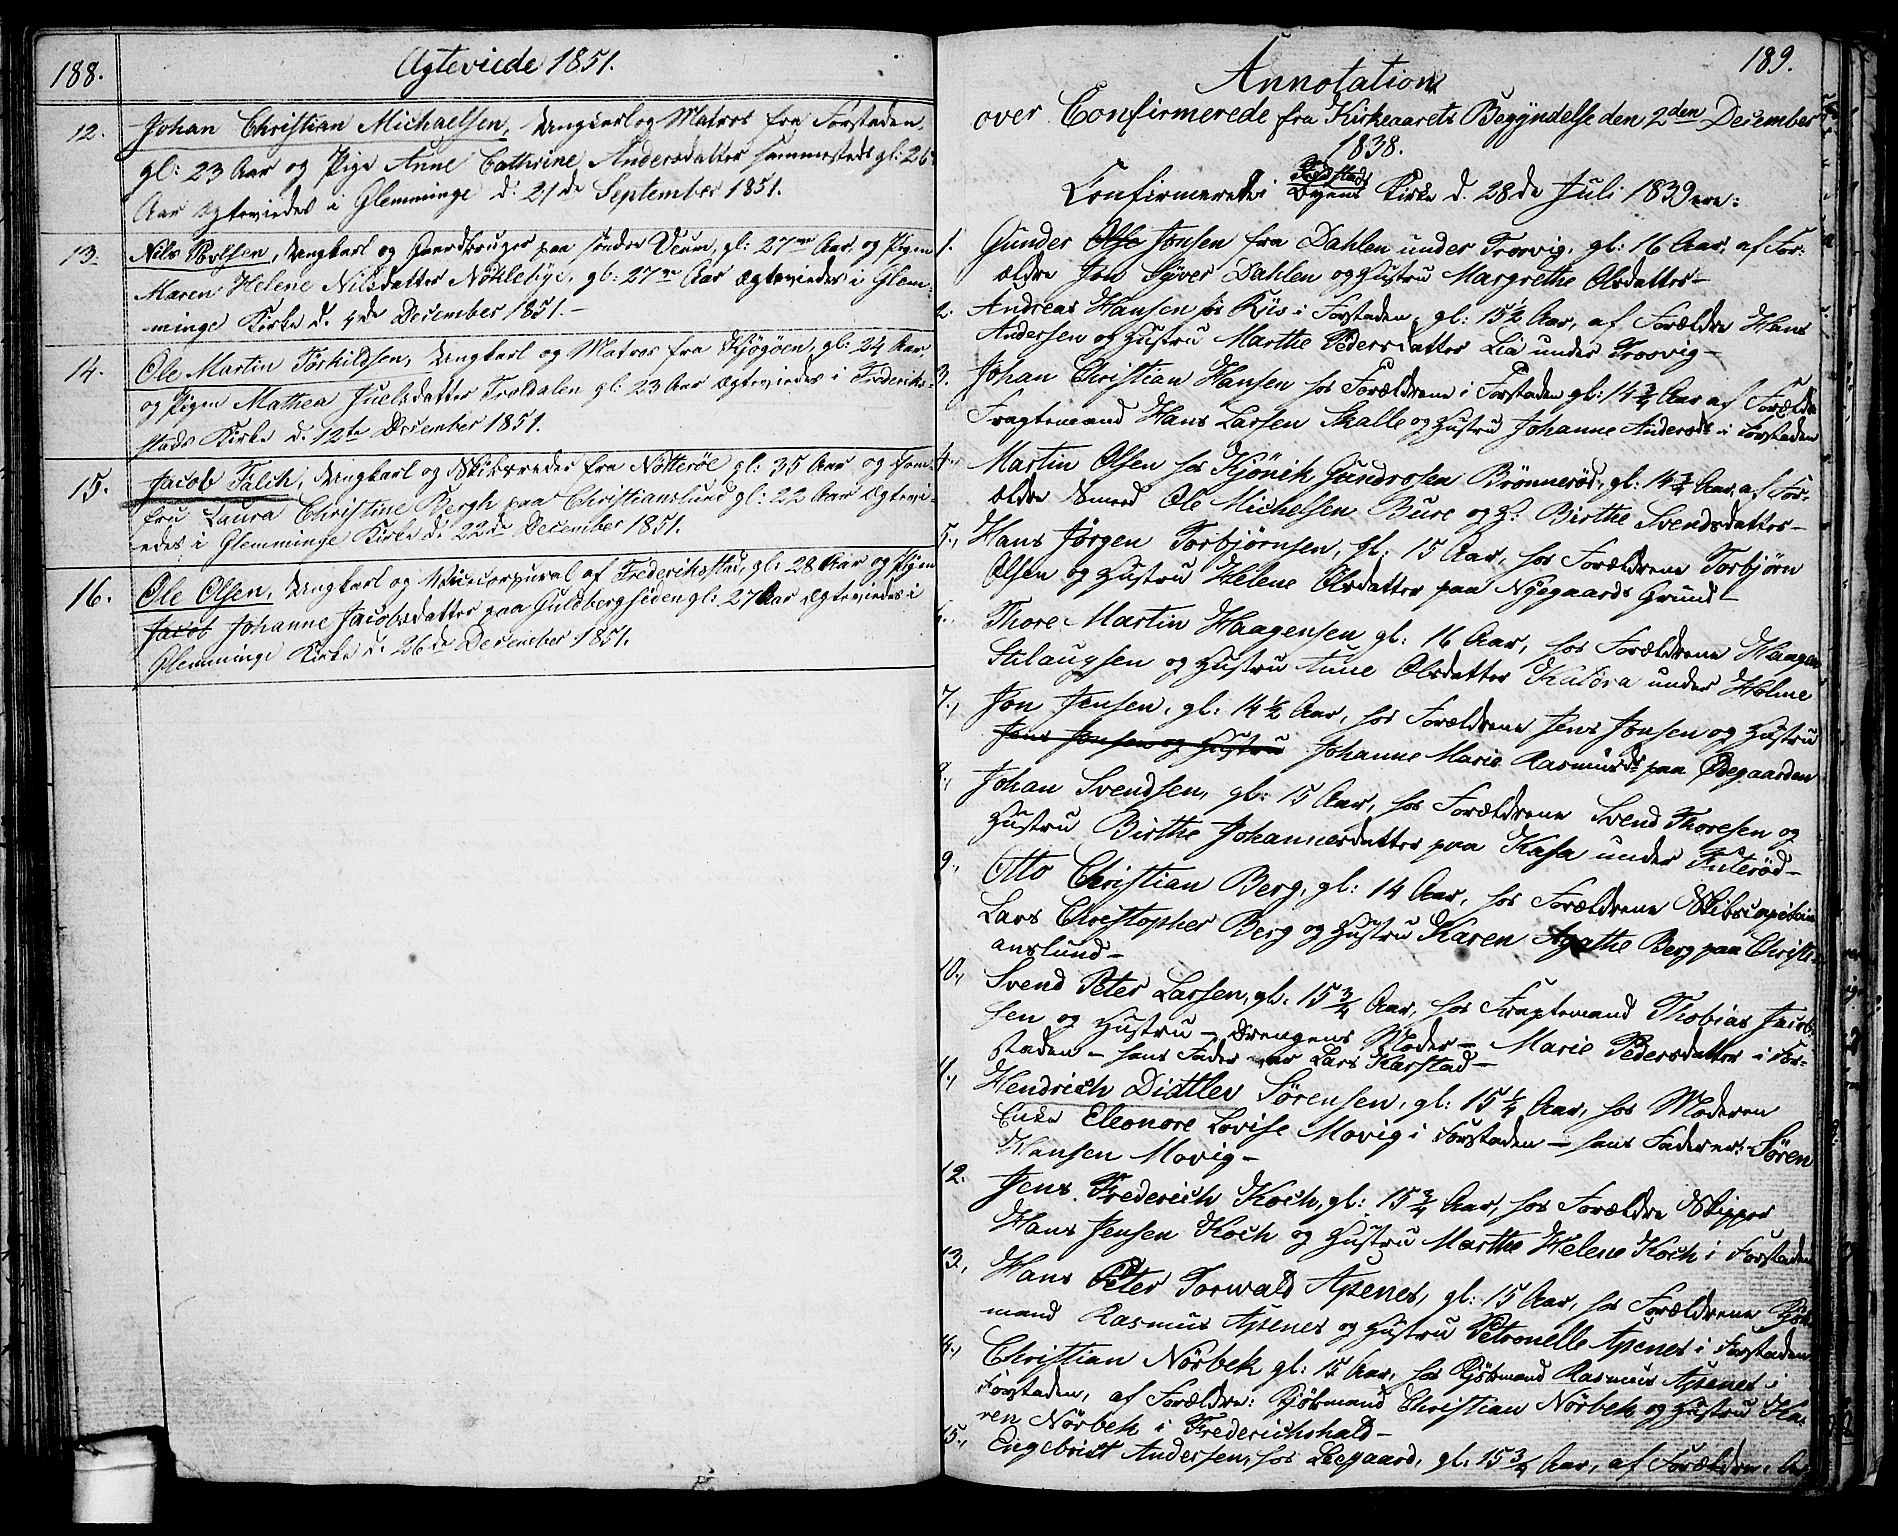 188.
Ægteviede 1851.
12. Johan Christian Michaelsen, Ungkarl og Matros fra Forstaden,
gl: 23 Aar og Pige Anne Cathrine Andersdatter sammesteds gl: 26
Aar Ægteviedes i Glemminge d: 21de September 1851.
13. Nils Nielsen, Ungkarl og Gaardbruger paa søndre Veum, gl: 27 Aar, og Pigen
Maren Helene Nilsdatter Nøkleby, gl: 27 Aar Ægteviedes i Glem-
minge Kirke d. 4de December 1851.-
14. Ole Martin Torkildsen, Ungkarl og Matros fra Kjøgøen, gl: 24 Aar
og Pigen Mathea Juelsdatter Troldalen gl: 23 Aar Ægteviedes i Frederik-
stads Kirke d. 12te December 1851.
15. Jacob Falch, Ungkarl og Skibsreder fra Nøtterøe gl: 35 Aar og Jom-
fru Laura Christine Bergh paa Christianslund gl: 22 Aar Ægtevi-
edes i Glemminge Kirke d: 22de December 1851.
16. Ole Olsen, Ungkarl og Vicecorporal af Frederikstad, gl: 28 Aar og Pigen
Jacob Johanne Jacobsdatter paa Guldbergsiden gl: 27 Aar Ægteviedes i
Glemminge Kirke d: 26de December 1851.
189.
Annotation
over Confirmerede fra Kirkeaarets Begyndelse den 2den December
1838.
Confirmerede i Byens Kirke d. 28de Juli 1839 ere:
1. Gunder Olse Jonsen fra Dahlen under Trosvig, gl: 16 Aar, af For-
ældre Jon Syver Dahlen og Hustru Margrethe Olsdatter-
2. Andreas Hansen hos Riis i Forstaden, gl: 15½ Aar, af Forældre Hans
Andersen og Hustru Marthe Pedersdatter Lia under Trosvig-
3. Johan Christian Hansen hos Forældrene i Forstaden gl: 14¾ Aar af Forældre
Fragtemand Hans Larsen Skalle og Hustru Johanne Andersd: i Forstaden
4., Martin Olsen hos Kjönik Gundrosen Brönnerød, gl: 14¾ Aar, af For-
ældre Smed Ole Michelsen Bure og H: Birthe Svendsdatter-
5., Hans Jørgen Torbjørnsen, gl: 15 Aar, hos Forældrene Torbjørn
Olsen og Hustru Helene Olsdatter paa Nyegaards Grund-
6., Thore Martin Haagensen gl: 16 Aar, hos Forældrene Haagen
Stilaugsen og Hustru Anne Olsdatter Katøra under Holme
7., Jon Jensen, gl: 14½ Aar, hos Forældrene Jens Jonsen og Hustru
Jens Jonsen og Hustru Johanne Marie Rasmusd: paa Ødegaarden
8., Johan Svendsen, gl: 15 Aar, hos Forældrene Svend Thoresen og
Hustru Birthe Johannesdatter paa Kasa under Tuterød-
9., Otto Christian Berg, gl: 14 Aar, hos Forældrene Skibscapitain
Lars Christopher Berg og Hustru Karen Agathe Berg paa Christi-
anslund-
10., Svend Peter Larsen, gl: 15¾ Aar, hos Fragtemand Thobias Jacob-
sen og Hustru - Drengens Moder - Marie Pedersdatter i For-
staden - hans Fader var Lars Karstad-
11., Hendrich Diettlev Sørensen, gl: 15¼ Aar, hos Moderen
Enke Eleonore Lovise Movig i Forstaden - hans Fader er: Søren
Hansen Movig-
12. Jens Frederich Koch, gl: 15¾ Aar, hos Forældre Skipper
Hans Jensen Koch og Hustru Marthe Helene Koch i Forstaden
13., Hans Peter Torwald Apenes, gl: 15 Aar, hos Forældrene Kjøb-
mand Rasmus Apenes og Hustru Petronelle Apenes i Forstaden
14., Christian Nörbek gl: 15 Aar, hos Kjøbmand Rasmus Apenes i
Forstaden, af Forældre: Kjøbmand Christian Nörbek og Hustru Ka-
ren Nörbek i Frederichshald-
15., Engebrict Andersen, hos Leegaard, gl: 15¾ Aar, af Forældrene,